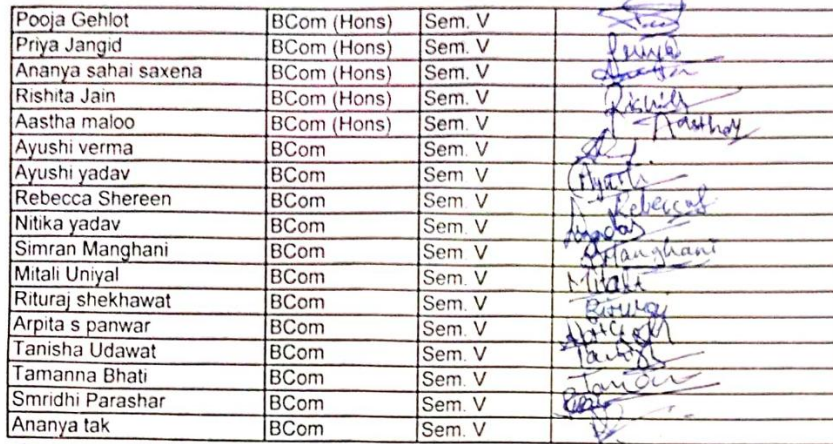 Pooja Gehlot BCom (Hons) Sem. V
Priya Jangid BCom (Hons) Sem. V Priya
Ananya sahai saxena BCom (Hons) Sem. V
Rishita Jain BCom (Hons) Sem. V
Aastha maloo BCom (Hons) Sem. V
Ayushi verma BCom Sem. V
Ayushi yadav BCom Sem. V Ayushi
Rebecca Shereen BCom Sem. V Rebecca
Nitika yadav BCom Sem. V
Simran Manghani BCom Sem. V Manghani
Mitali Uniyal BCom Sem. V Mitali
Rituraj shekhawat BCom Sem. V
Arpita s panwar BCom Sem. V
Tanisha Udawat BCom Sem. V
Tamanna Bhati BCom Sem. V
Smridhi Parashar BCom Sem. V
Ananya tak BCom Sem. V